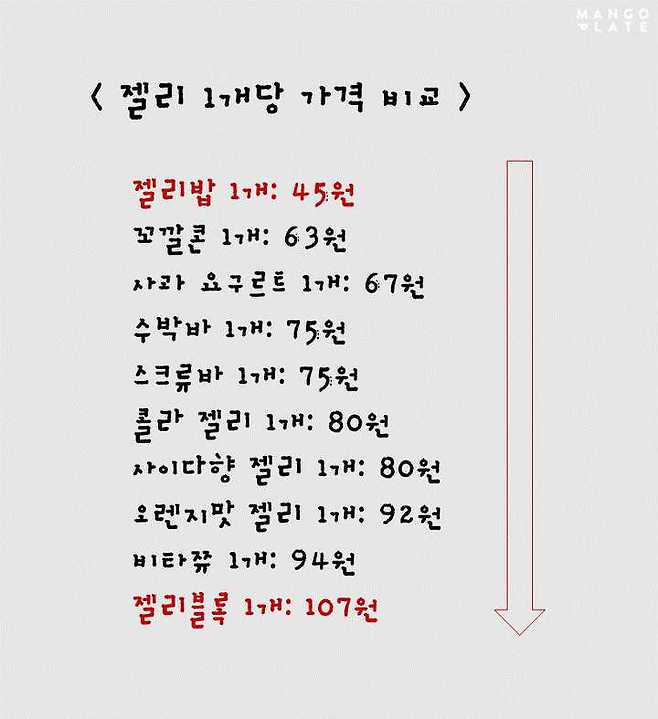 MANGO
PLATE
< 젤리 1개당 가격 비교 >
젤리밥 1개: 45원
꼬깔콘 1개: 63원
사과 요구르트 1개: 67원
수박바 1개: 75원
스크류바 1개: 75원
콜라 젤리 1개: 80원
사이다향 젤리 1개: 80원
오렌지맛 젤리 1개: 92원
비타쮸 1개: 94원
젤리블록 1개: 107원